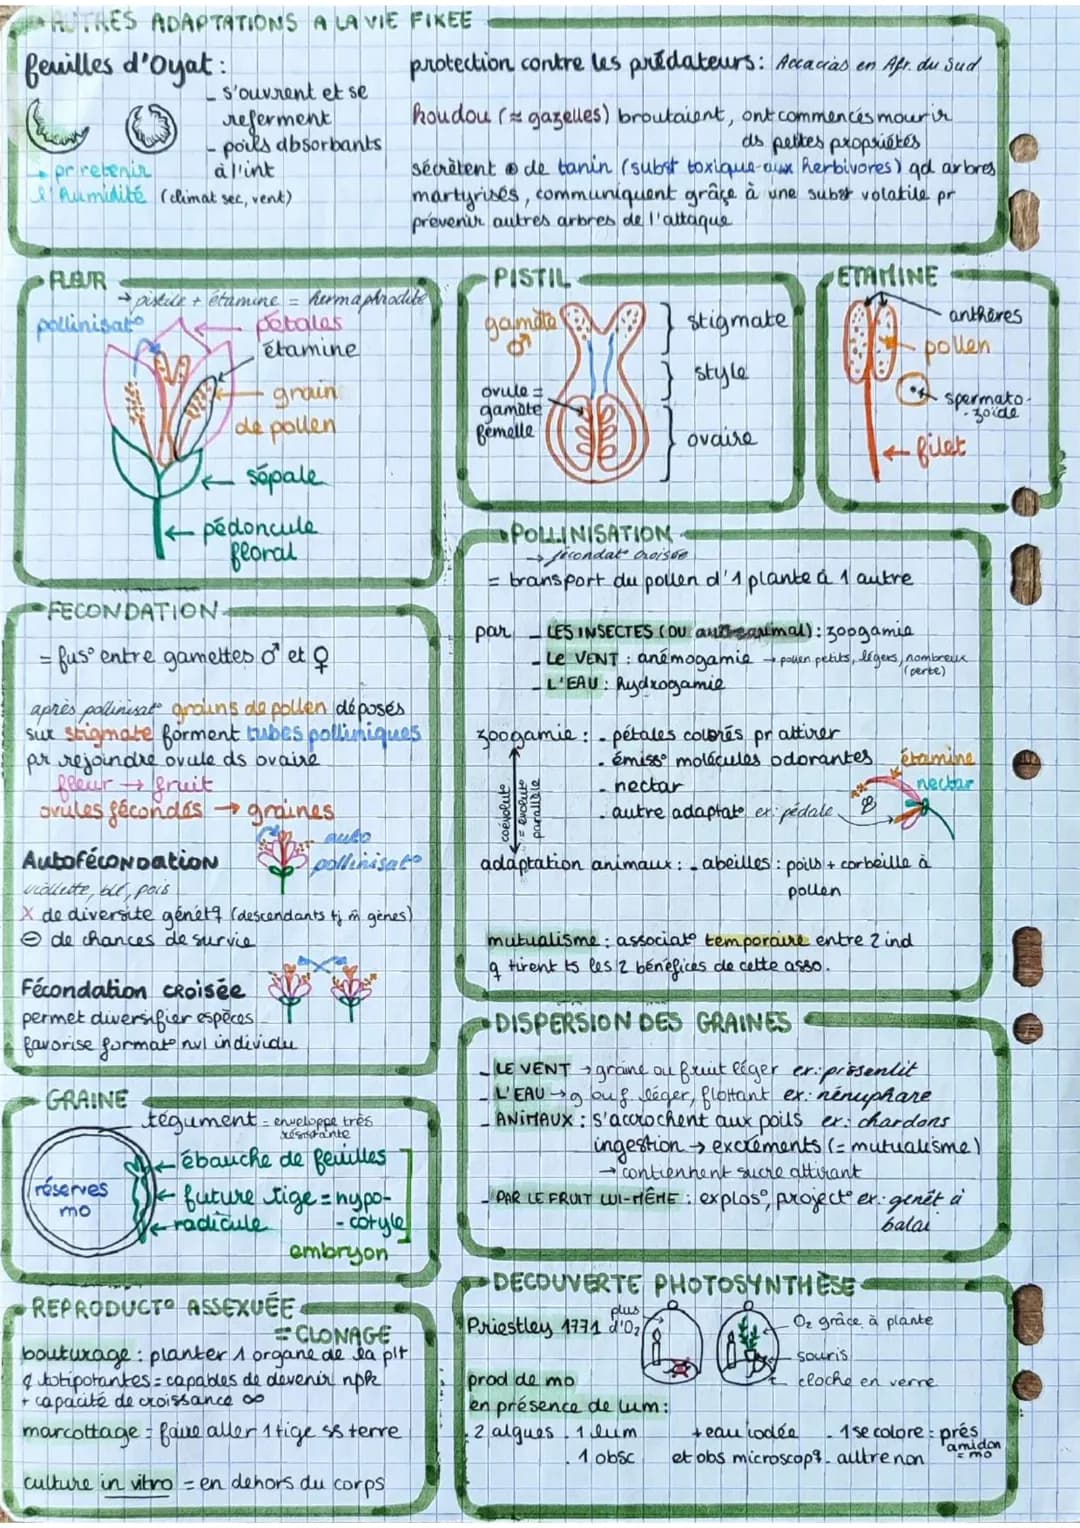 AUTRES ADAPTATIONS A LA VIE FIXEE
feuilles d'Oyat :
- s'ouvrent et se
referment
- poils absorbants
à l'int
→ pr retenir
l'humidité (climat sec, vent)
protection contre les prédateurs : Accacias en Afr. du Sud
koudou (≈ gazelles) broutaient, ont commencés mourir
ds petites propriétés
sécrètent ⊕ de tanin (subst toxique aux herbivores) qd arbres
martyrisés, communiquent grâce à une subst volatile pr
prévenir autres arbres de l'attaque
FLEUR
→ pistile + étamine = hermaphrodite
pollinisat°
pétales
étamine
grain
de pollen
sépale
pédoncule
floral
PISTIL
gamète
♂
ovule =
gamète
femelle
stigmate
style
ovaire
ETAMINE
anthères
pollen
spermato-
-zoïde
filet
POLLINISATION
→ fécondat° croisée
= transport du pollen d'1 plante à 1 autre
par - LES INSECTES (OU animal) : zoogamie
- Le VENT : anémogamie → pollen petits, légers, nombreux
(perte)
- L'EAU : hydrogamie
zoogamie : - pétales colorés pr attirer
. émiss° molécules odorantes
- nectar
. autre adaptat° ex : pédale
coévolut°
= évolut°
parallèle
étamine
nectar
adaptation animaux : - abeilles : poils + corbeille à
pollen
mutualisme : associat° temporaire entre 2 ind
q tirent ts les 2 bénéfices de cette asso.
FECONDATION
= fus° entre gamettes ♂ et ♀
après pollinisat° grains de pollen déposés
sur stigmate forment tubes polliniques
pr rejoindre ovule ds ovaire
fleur → fruit
ovules fécondés → graines
auto
pollinisat°
Autofécondation
viollette, blé, pois
X de diversité génétq (descendants tj m̂ gènes)
⊖ de chances de survie
Fécondation croisée
permet diversifier espèces
favorise format° nvl individu
DISPERSION DES GRAINES
- LE VENT → graine ou fruit léger ex : pissenlit
- L'EAU → g ou f léger, flottant ex : nénuphare
- ANIMAUX : s'accrochent aux poils ex : chardons
ingestion → excréments (= mutualisme)
→ contiennent sucre attirant
- PAR LE FRUIT LUI-MÊME : explos°, project° ex : genêt à
balai
GRAINE
tégument = enveloppe très
résistante
ébauche de feuilles
réserves
mo
future tige = hypo-
- cotyle
radicule
embryon
REPRODUCT° ASSEXUÉE
= CLONAGE
bouturage : planter 1 organe de la plt
q totipotantes = capables de devenir npk
+ capacité de croissance ∞
marcottage = faire aller 1 tige ss terre
culture in vitro = en dehors du corps
DECOUVERTE PHOTOSYNTHÈSE
Priestley 1771
plus
d'O₂
O₂ grâce à plante
souris
cloche en verre
prod de mo
en présence de lum :
- 2 algues . 1 lum + eau iodée - 1 se colore : prés
amidon
= mo
. 1 obsc et obs microscopq - auttre non